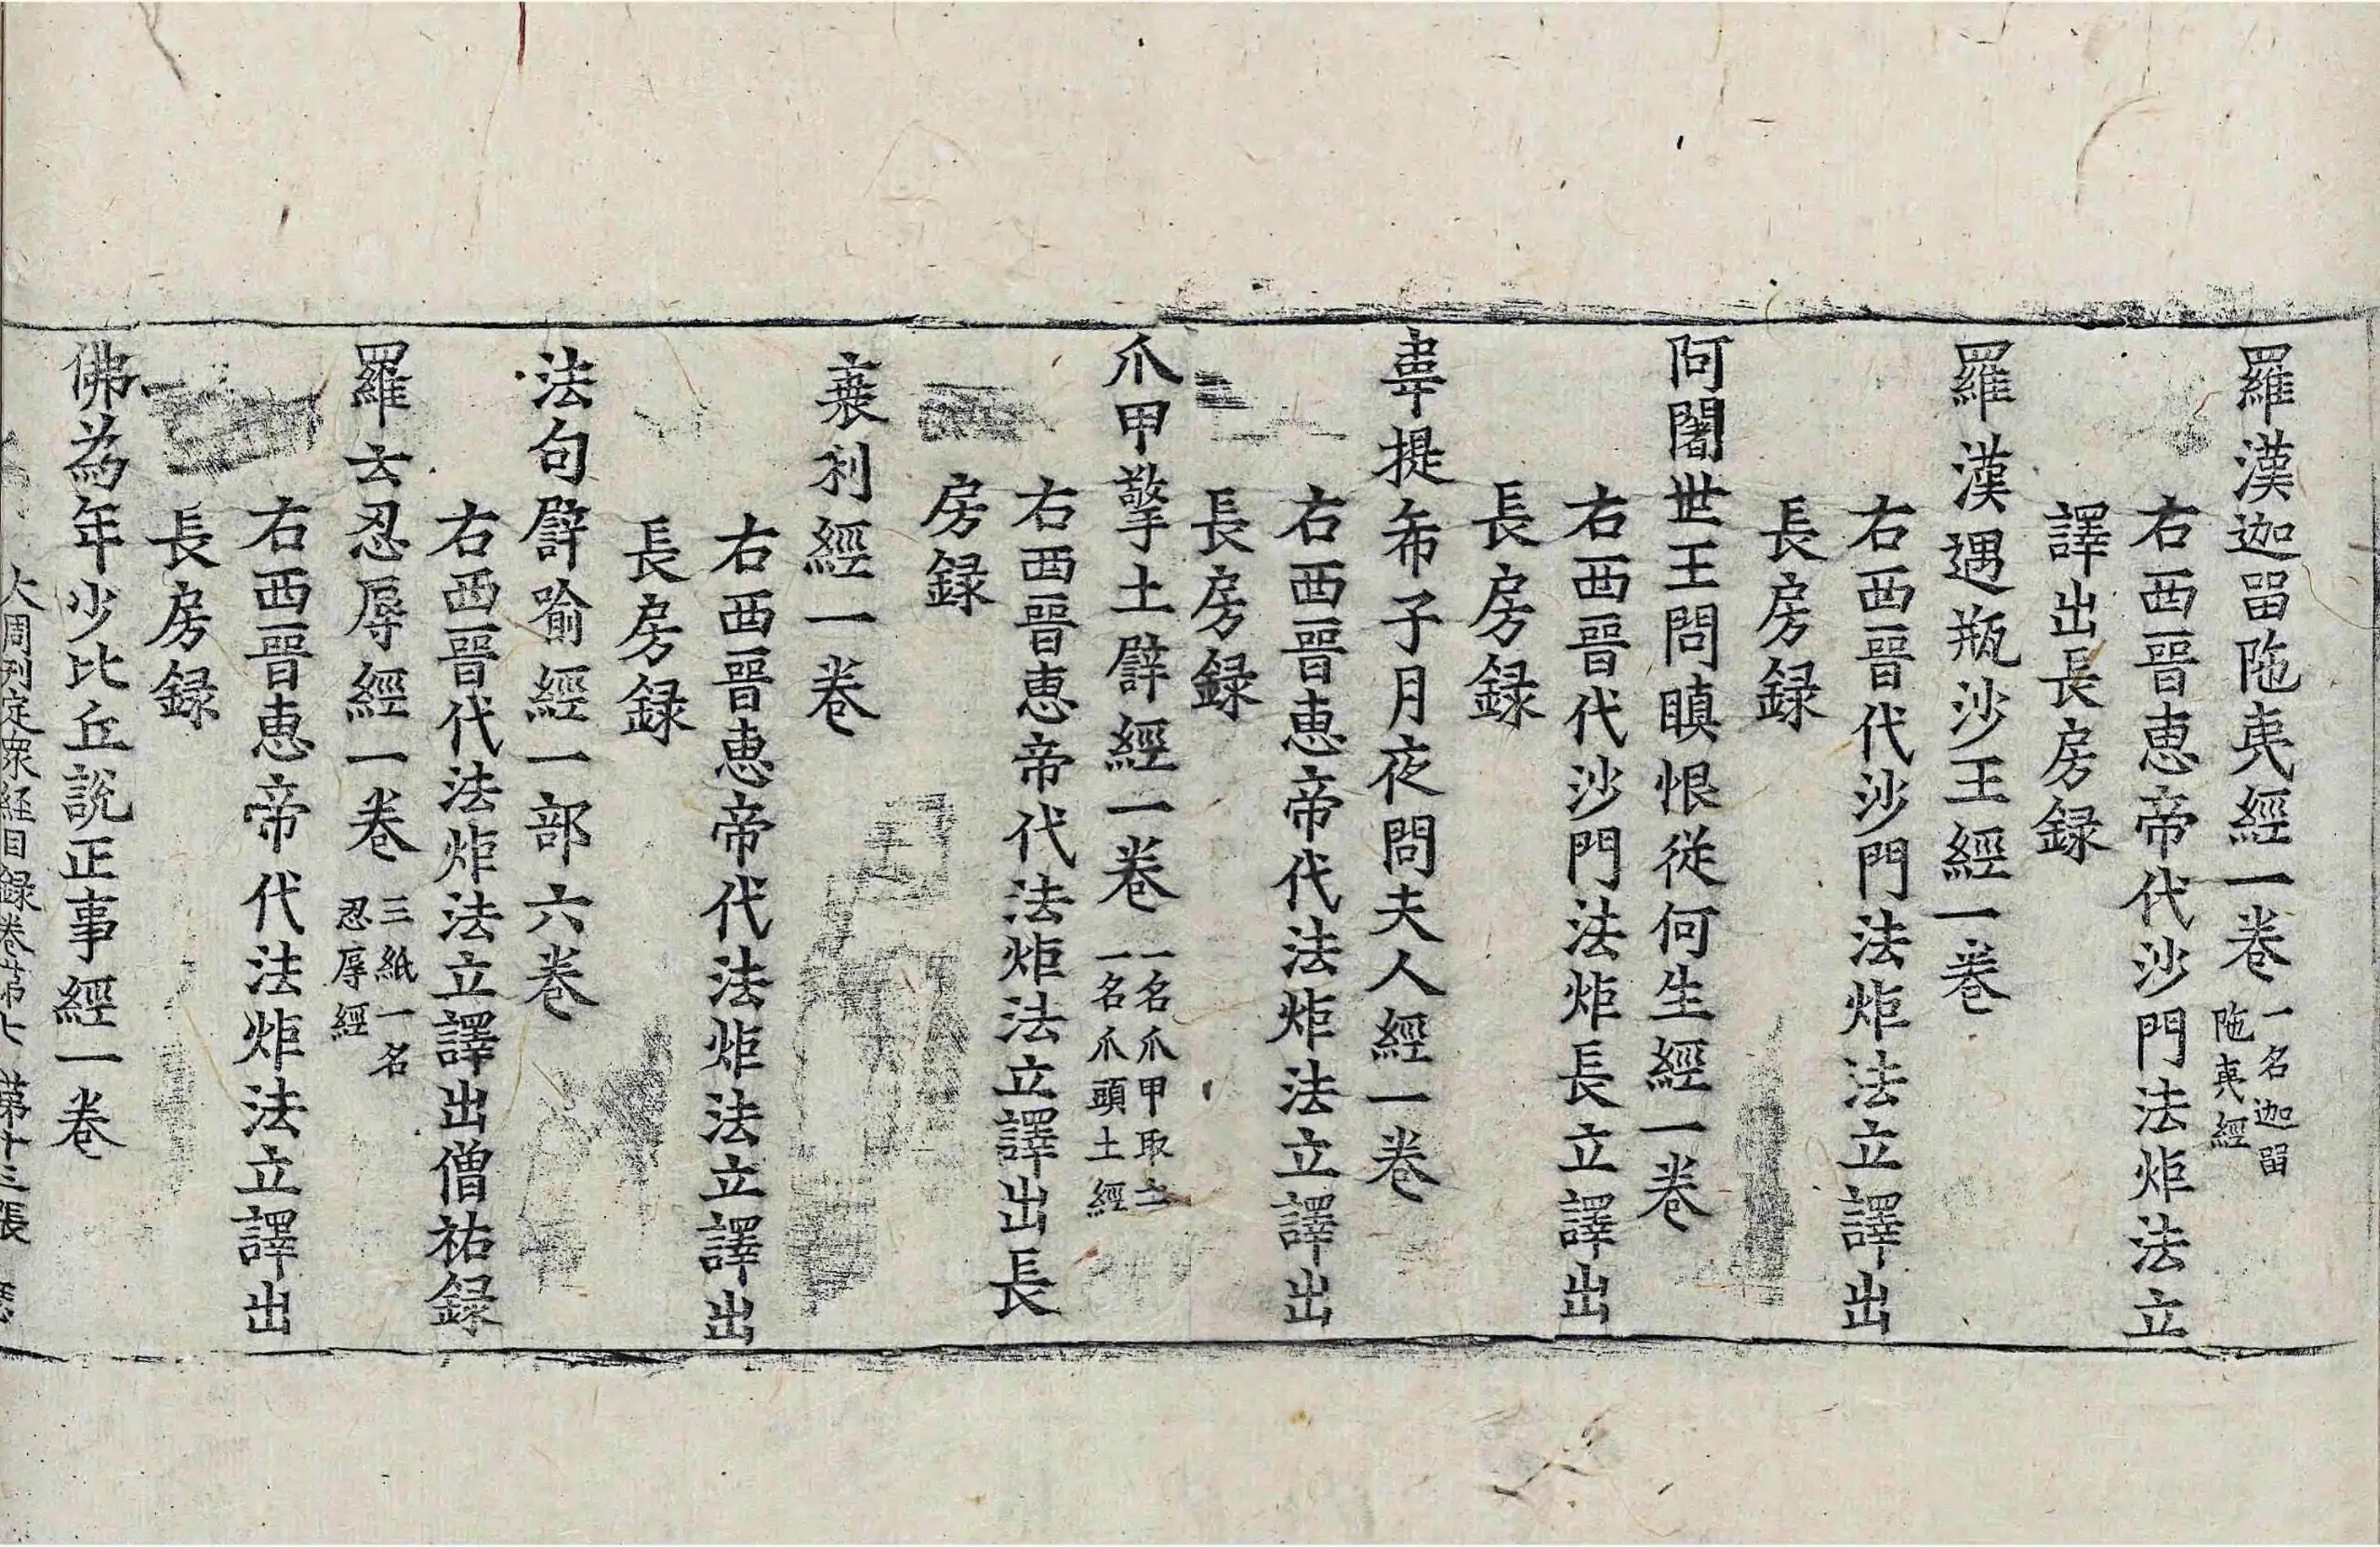 羅漢迦留陁夷經一卷 一名迦留
陁夷經
右西晉惠帝代沙門法炬法立
譯出長房録
羅漢遇瓶沙王經一卷
右西晉代沙門法炬法立譯出
長房録
阿闍世王問瞋恨從何生經一卷
右西晉代沙門法炬長立譯出
長房録
韋提希子月夜問夫人經一卷
右西晉惠帝代法炬法立譯出
長房録
爪甲擎土譬經一卷 一名爪甲取土
一名爪頭土經
右西晉惠帝代法炬法立譯出長
房録
衰利經一卷
右西晉惠帝代法炬法立譯出
長房録
法句譬喻經一部六卷
右西晉代法炬法立譯出僧祐録
羅云忍辱經一卷 三紙一名
忍辱經
右西晉惠帝代法炬法立譯出
長房録
佛為年少比丘說正事經一卷
大周刊定衆経目録卷苐七 苐十三張